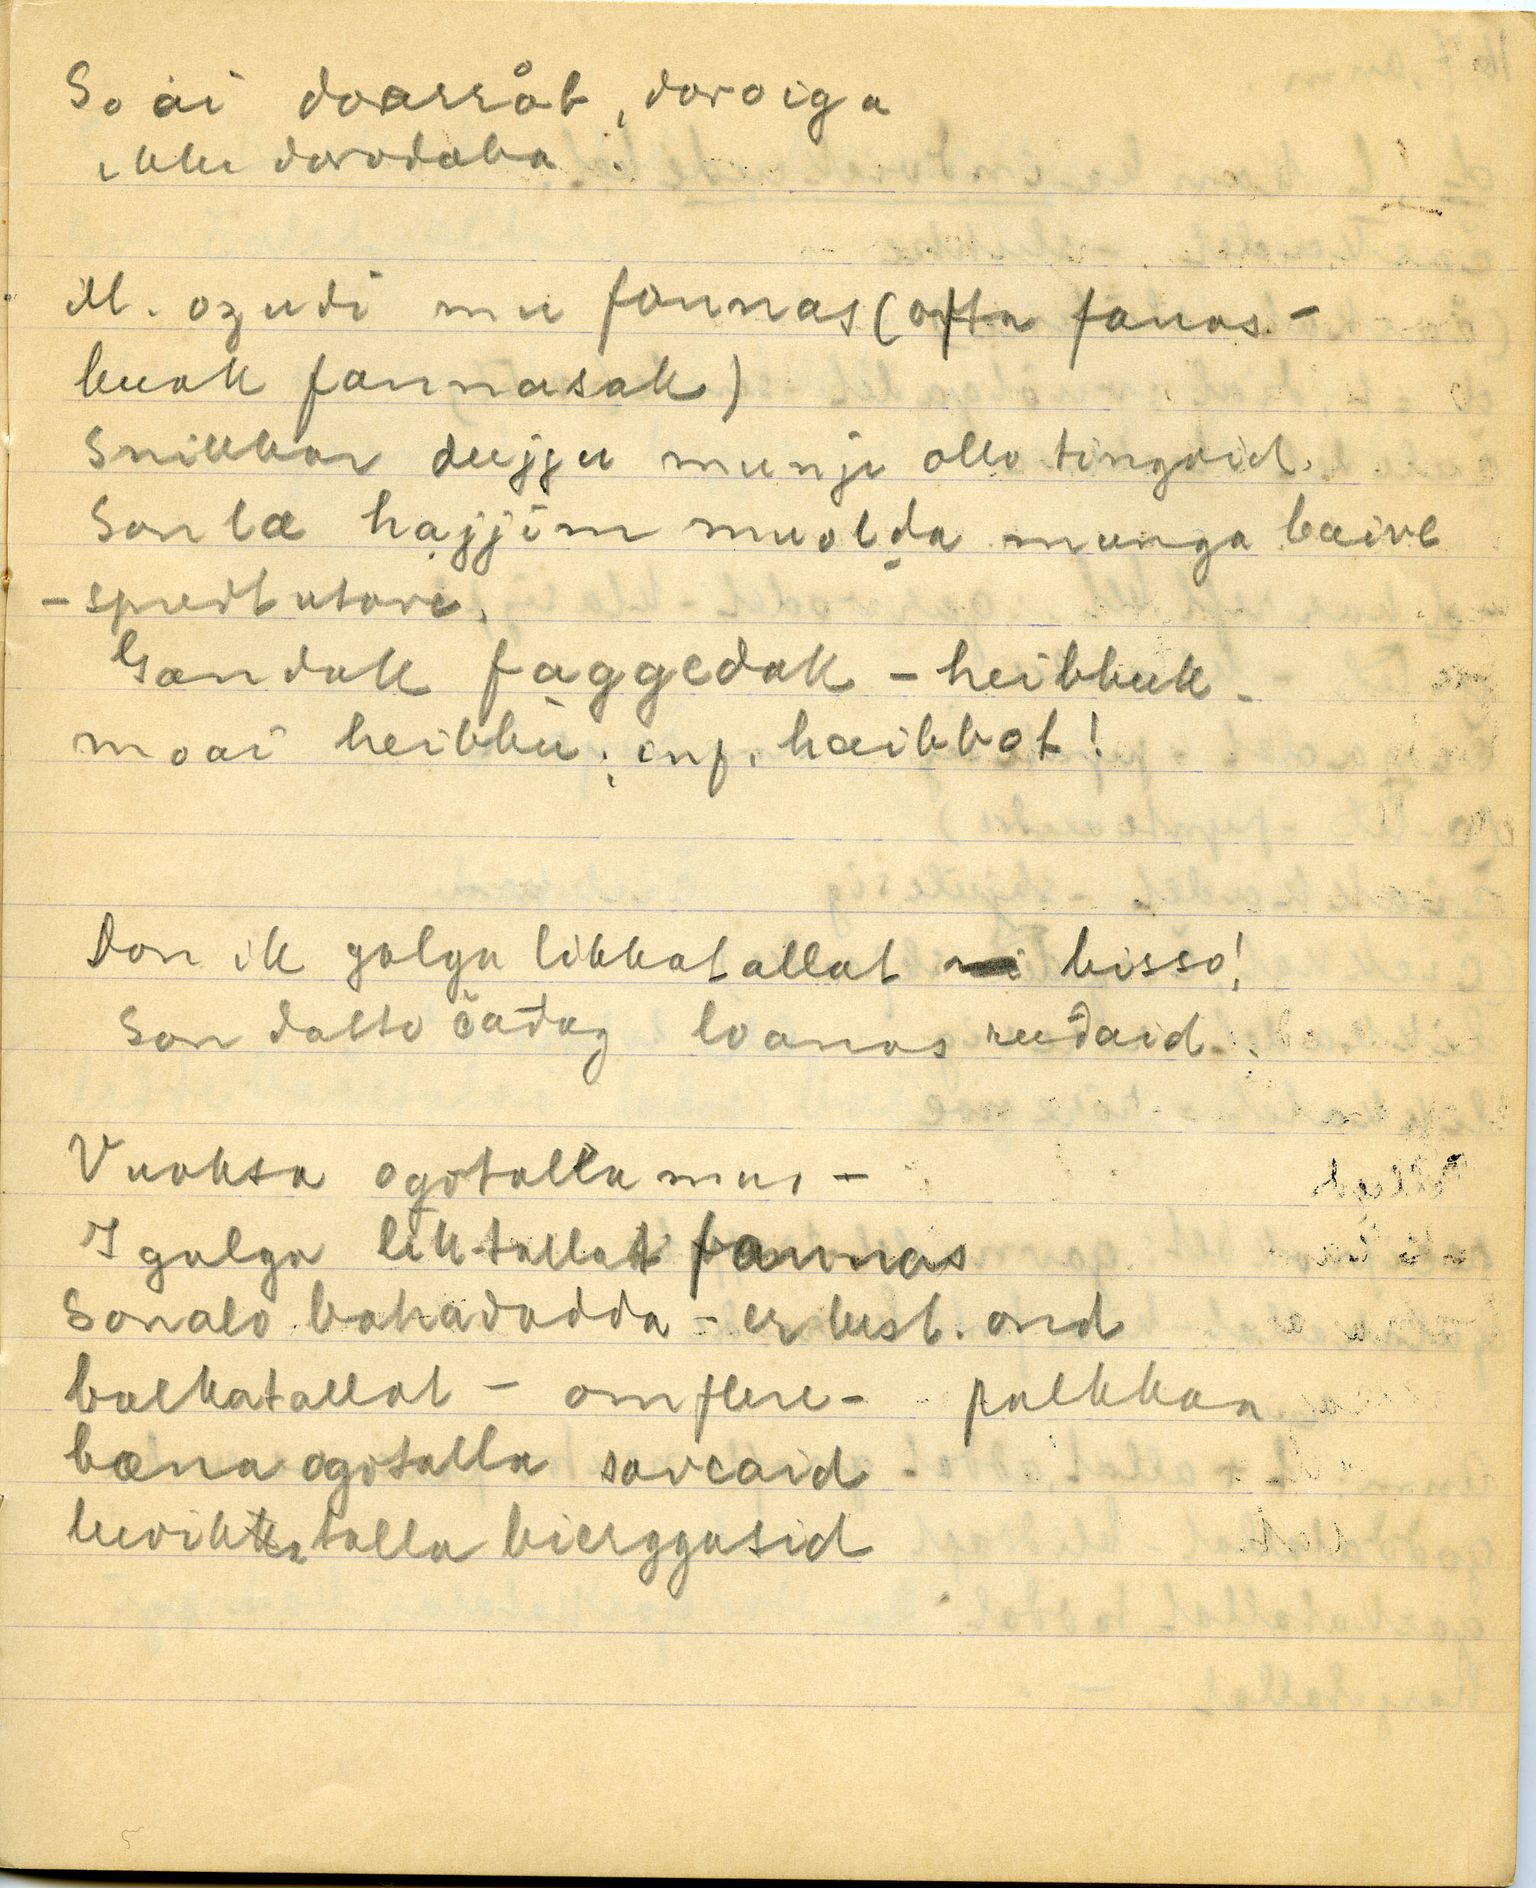 Soai doarråb, doroiga
ikke dorodæba.
M. ozudi mu fannas (ofta fanas-
buok fannasak)
Snikkar dujju munji ollo tingoid.
Son læ hajjim muolda munga bæive
- spredt utover.
Gandak faggedak - heibbuk -
moai heibbu; inf. hæibbot!
Don ik galga likkatallat bisso!
Son datto čađag loanas ruđaid.
Vuoksa ogotalla mus -
I galga liktallat fannas
Son alo bahadadda - er best. ond
balkatallat - om flere - palkkaa
bæna ogotalla savcaid
talla bierggasid